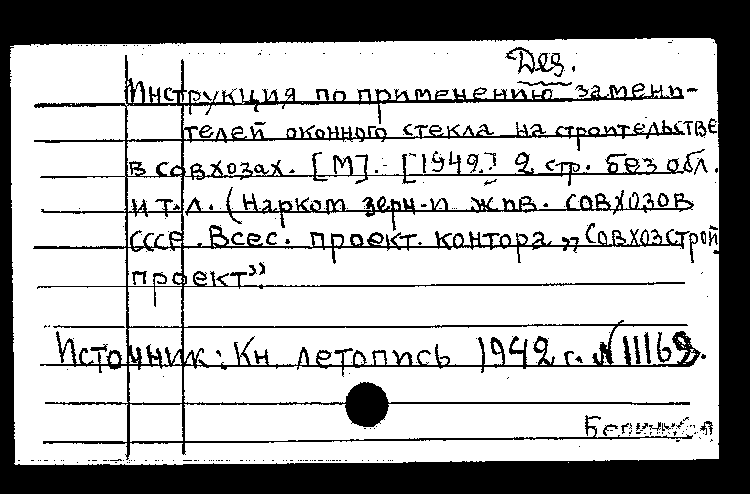 Дез.
Инструкция по применению замени-
телей оконного стекла на строительстве
в совхозах. [М]. - [1942.] 2 стр. без обл.
и т.л. (Нарком зерн-и жив. совхозов
СССР. Всес. проект. контора „Совхозстрой
проект".
Источник: Кн. летопись 1942 г. № 11169.